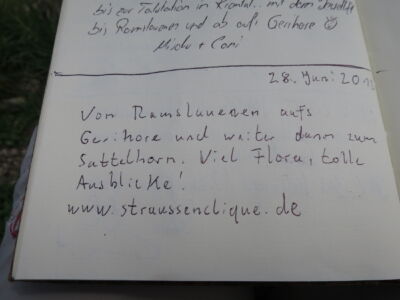 bis zur Talstation in
mit dem
bis Ramslauenen und ab aufs Gerihorn
28. Juni 201
Von Ramslauenen aufs
Gerihore und weiter dann zum
Sattelhorn. Viel Flora, tolle
Ausblicke!
www.straussenclique.de